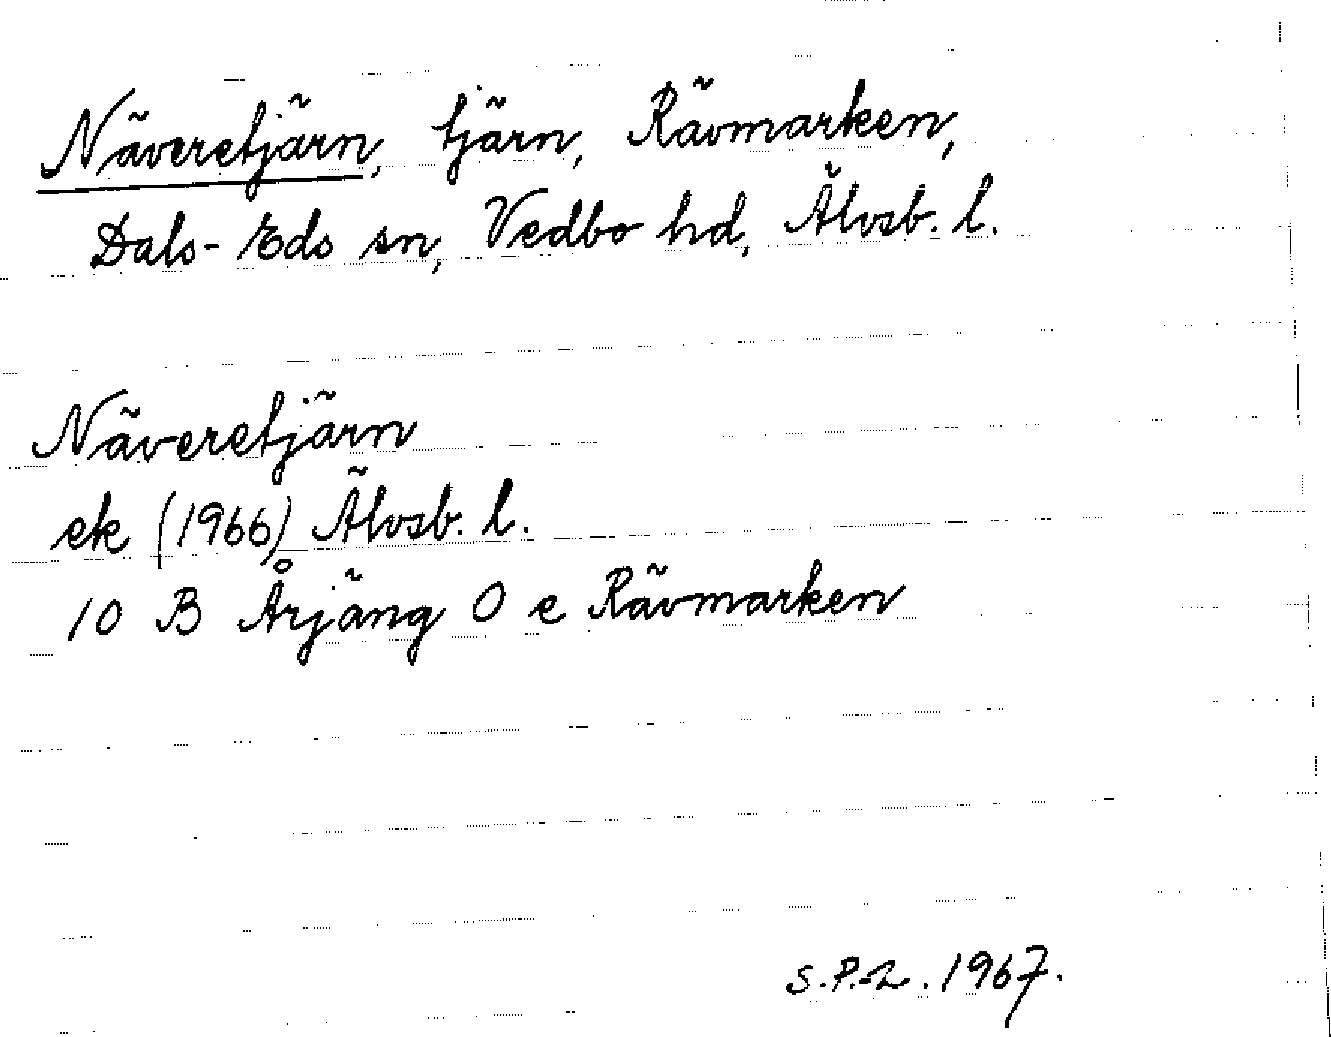 Näveretjärn, tjärn, Rävmarken,
Dals-Eds sn, Vedbo hd, Älvsb. l.
Näveretjärn
ek (1966) Älvsb. l.
10 B Årjäng 0 e Rävmarken
S.P.-L. 1967.